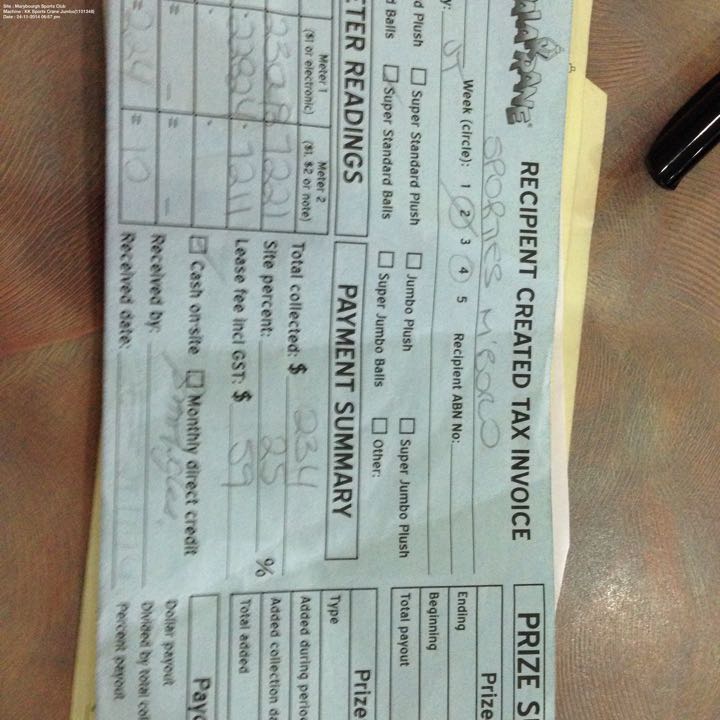 Site : Maryborough Sports Club
Machine : KK Sports Crane Jumbo(1101348)
Date : 24-11-2014 06:57 pm
RECIPIENT CREATED TAX INVOICE
SPORTIES M'BORO
Week (circle): 1 2 3 4 5 Recipient ABN No:
d Plush Super Standard Plush Jumbo Plush Super Jumbo Plush
d Balls Super Standard Balls Super Jumbo Balls Other:
ETER READINGS
Meter 1
($1 or electronic)
Meter 2
($1, $2 or note)
7221
7211
= 234
= 10
PAYMENT SUMMARY
Total collected: $ 234
Site percent: 25 %
Lease fee incl GST: $ 59
Cash on-site Monthly direct credit
Received by:
Received date:
PRIZE S
Prize
Ending
Beginning
Total payout
Prize
Type
Added during perio
Added collection da
Total added
Payo
Dollar payout
Divided by total col
Percent payout